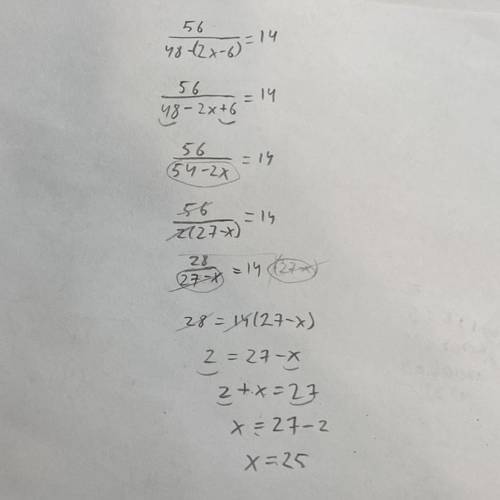 56/(48-(2x-6)) = 14
56/(48-2x+6) = 14
56/(54-2x) = 14
56/(2(27-x)) = 14
28/(27-x) = 14 (27-x)
28 = 14(27-x)
2 = 27-x
2+x = 27
x = 27-2
x = 25